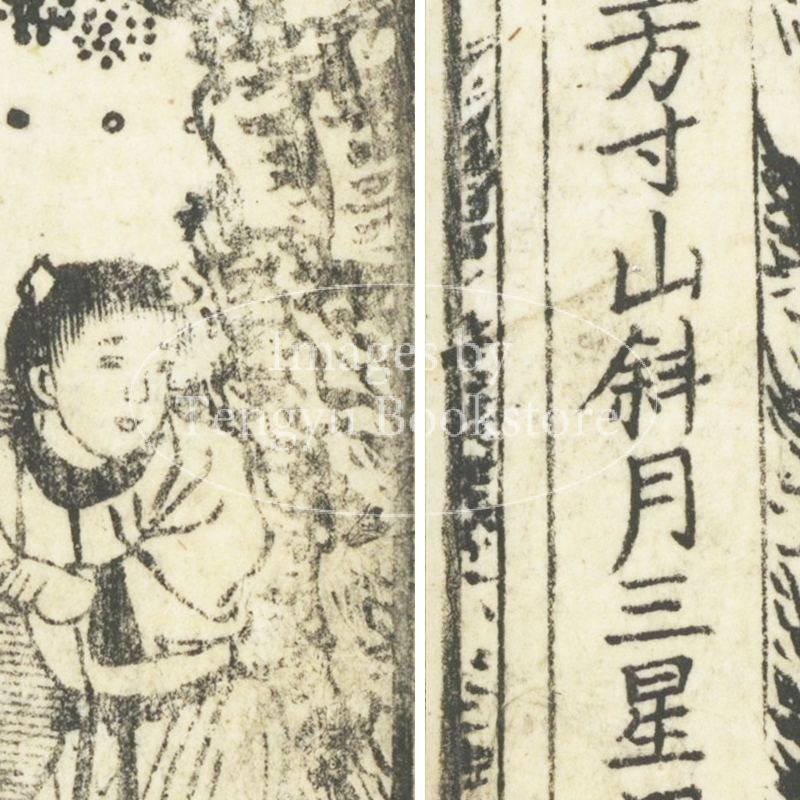 方寸山斜月三星
Images by
Tengyu Bookstore